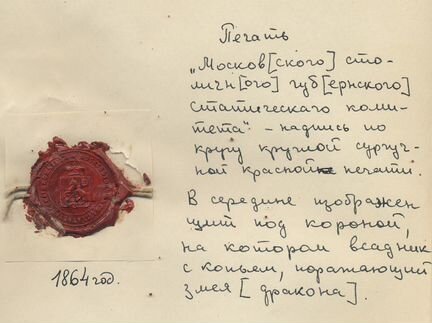 Печать
„Москов[ского] сто-
личн[ого] губ[ернского]
статическаго коми-
тета" – надпись по
кругу круглой сургуч-
ной красной печати.
В середине изображен
щит под короной,
на котором всадник
с копьем, поражающий
змея [дракона].
1864 год.